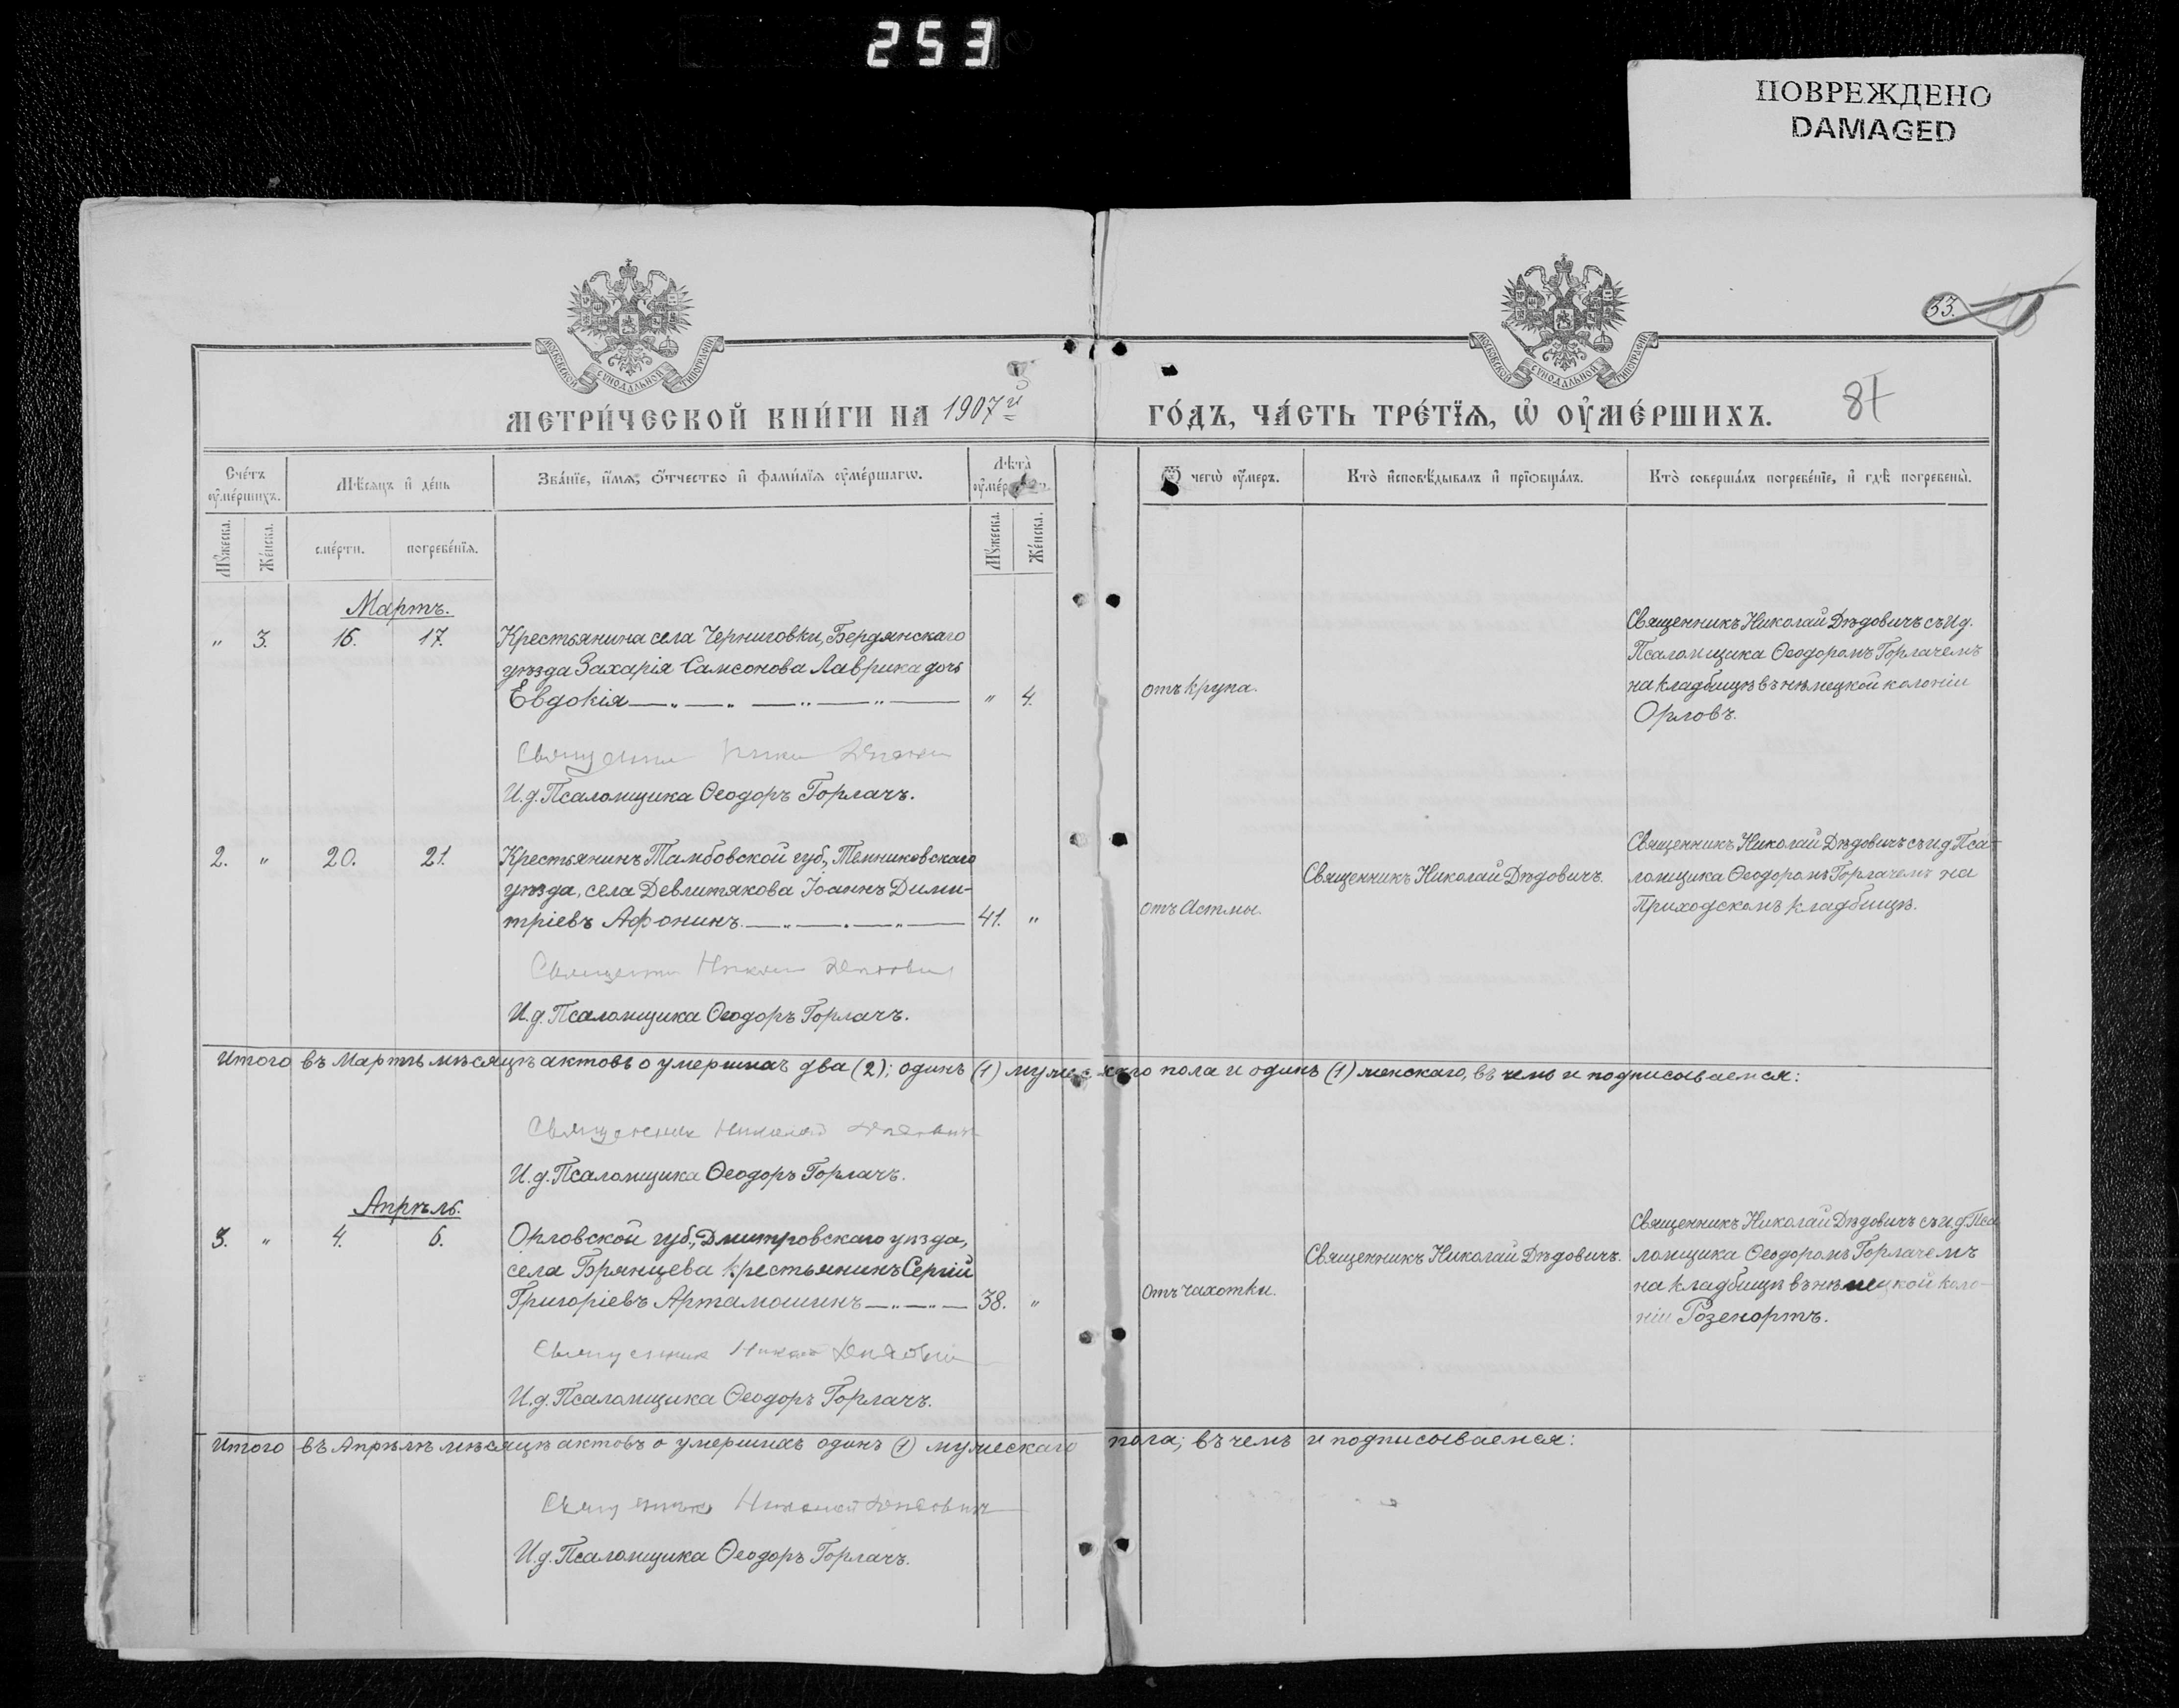 253
ПОВРЕЖДЕНО
DAMAGED
33.
МОСКОВСКОЙ СѴНОДАЛЬНОЙ ТИПОГРАФІИ
МОСКОВСКОЙ СѴНОДАЛЬНОЙ ТИПОГРАФІИ
МЕТРИ́ЧЕСКОЙ КНИ́ГИ НА 1907й ГО́ДЪ, ЧА́СТЬ ТРЕ́ТЇѦ, Ѡ҆ ОУ҆МЕ́РШИХЪ.
87
Сче́тъ оу҆ме́ршихъ.
Мѣ́сѧцъ и҆ де́нь
Зва́нїе, и҆́мѧ, ѻ҆́тчество и҆ фами́лїѧ оу҆ме́ршагѡ.
Лѣ́та
Ѿ чегѡ̀ оу҆́меръ.
Кто̀ и҆сповѣ́дывалъ и҆ прїѡбща́лъ.
Кто̀ соверша́лъ погребе́нїе, и҆ гдѣ̀ погребены̀.
Мꙋ́жеска.
Же́нска.
сме́рти.
погребе́нїѧ.
Мꙋ́жеска.
Же́нска.
Мартъ.
" 3. 16. 17. Крестьянина села Черниговки, Бердянскаго
уѣзда Захарія Самсонова Лаврика дочь
Евдокія " 4. отъ крупа.
Священникъ Николай Дѣдовичъ съ И.д.
Псаломщика Ѳеодоромъ Горлачемъ
на кладбищѣ въ нѣмецкой колоніи
Орловъ.
И.д. Псаломщика Ѳеодоръ Горлачъ.
2. " 20. 21. Крестьянинъ Тамбовской губ., Темниковскаго
уѣзда, села Девлитякова Іоаннъ Дими-
тріевъ Афонинъ. 41. " отъ Астмы.
Священникъ Николай Дѣдовичъ.
Священникъ Николай Дѣдовичъ съ и.д. Пса-
ломщика Ѳеодоромъ Горлачемъ на
Приходскомъ кладбищѣ.
Священникъ Николай Дѣдовичъ
И.д. Псаломщика Ѳеодоръ Горлачъ.
Итого въ Мартѣ мѣсяцѣ актовъ о умершихъ два (2); одинъ (1) мужескаго пола и одинъ (1) женскаго, въ чемъ и подписываемся:
Священникъ Николай Дѣдовичъ
И.д. Псаломщика Ѳеодоръ Горлачъ.
Апрѣль.
3. " 4. 6. Орловской губ., Дмитровскаго уѣзда,
села Брянцева крестьянинъ Сергій
Григоріевъ Артамошинъ 38. " Отъ чахотки.
Священникъ Николай Дѣдовичъ.
Священникъ Николай Дѣдовичъ съ И.д. Пса
ломщика Ѳеодоромъ Горлачемъ
на кладбищѣ въ нѣмецкой коло-
ніи Розенортъ.
Священникъ Николай Дѣдовичъ
И.д. Псаломщика Ѳеодоръ Горлачъ.
Итого въ Апрѣлѣ мѣсяцѣ актовъ о умершихъ одинъ (1) мужескаго пола; въ чемъ и подписываемся:
Священникъ Николай Дѣдовичъ
И.д. Псаломщика Ѳеодоръ Горлачъ.